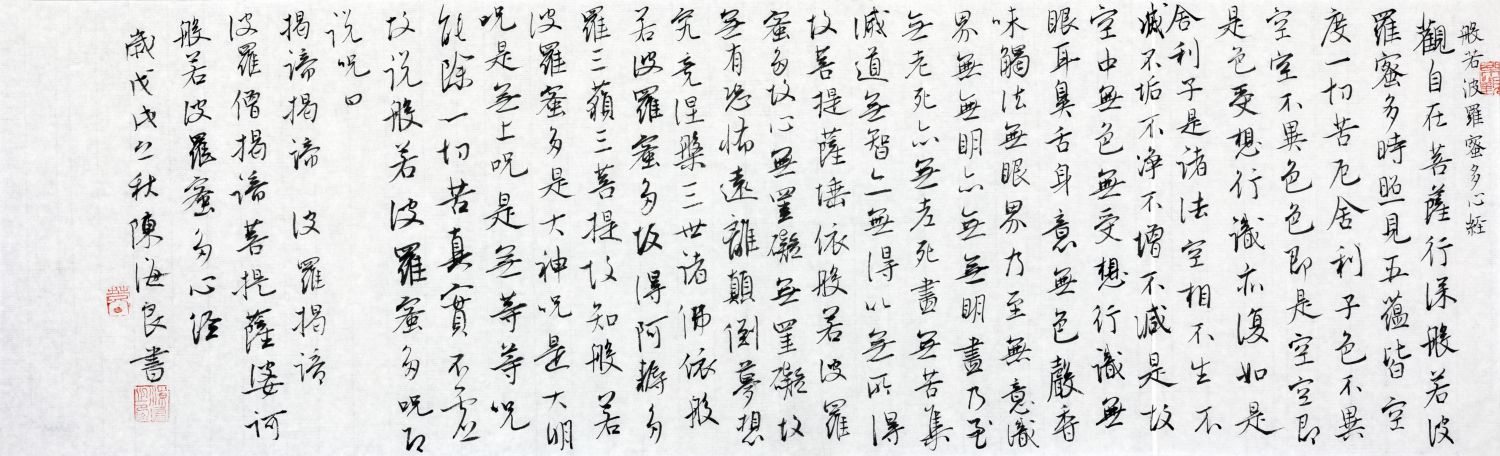 般若波羅蜜多心経
觀自在菩薩行深般若波
羅蜜多時照見五蘊皆空
度一切苦厄舍利子色不異
空空不異色色即是空空即
是色受想行識亦復如是
舍利子是諸法空相不生不
滅不垢不净不增不減是故
空中無色無受想行識無
眼耳鼻舌身意無色聲香
味觸法無眼界乃至無意識
界無無明亦無無明盡乃至
無老死亦無老死盡無苦集
滅道無智亦無得以無所得
故菩提薩埵依般若波羅
蜜多故心無罣礙無罣礙故
無有恐怖遠離顛倒夢想
究竟涅槃三世诸佛依般
若波羅蜜多故得阿耨多
羅三藐三菩提故知般若
波羅蜜多是大神咒是大明
咒是無上咒是無等等咒
能除一切苦真實不虛
故说般若波羅蜜多咒即
说咒曰
揭諦揭諦 波羅揭諦
波羅僧揭諦菩提薩婆訶
般若波羅蜜多心经
歲戊戌之秋陳海良書